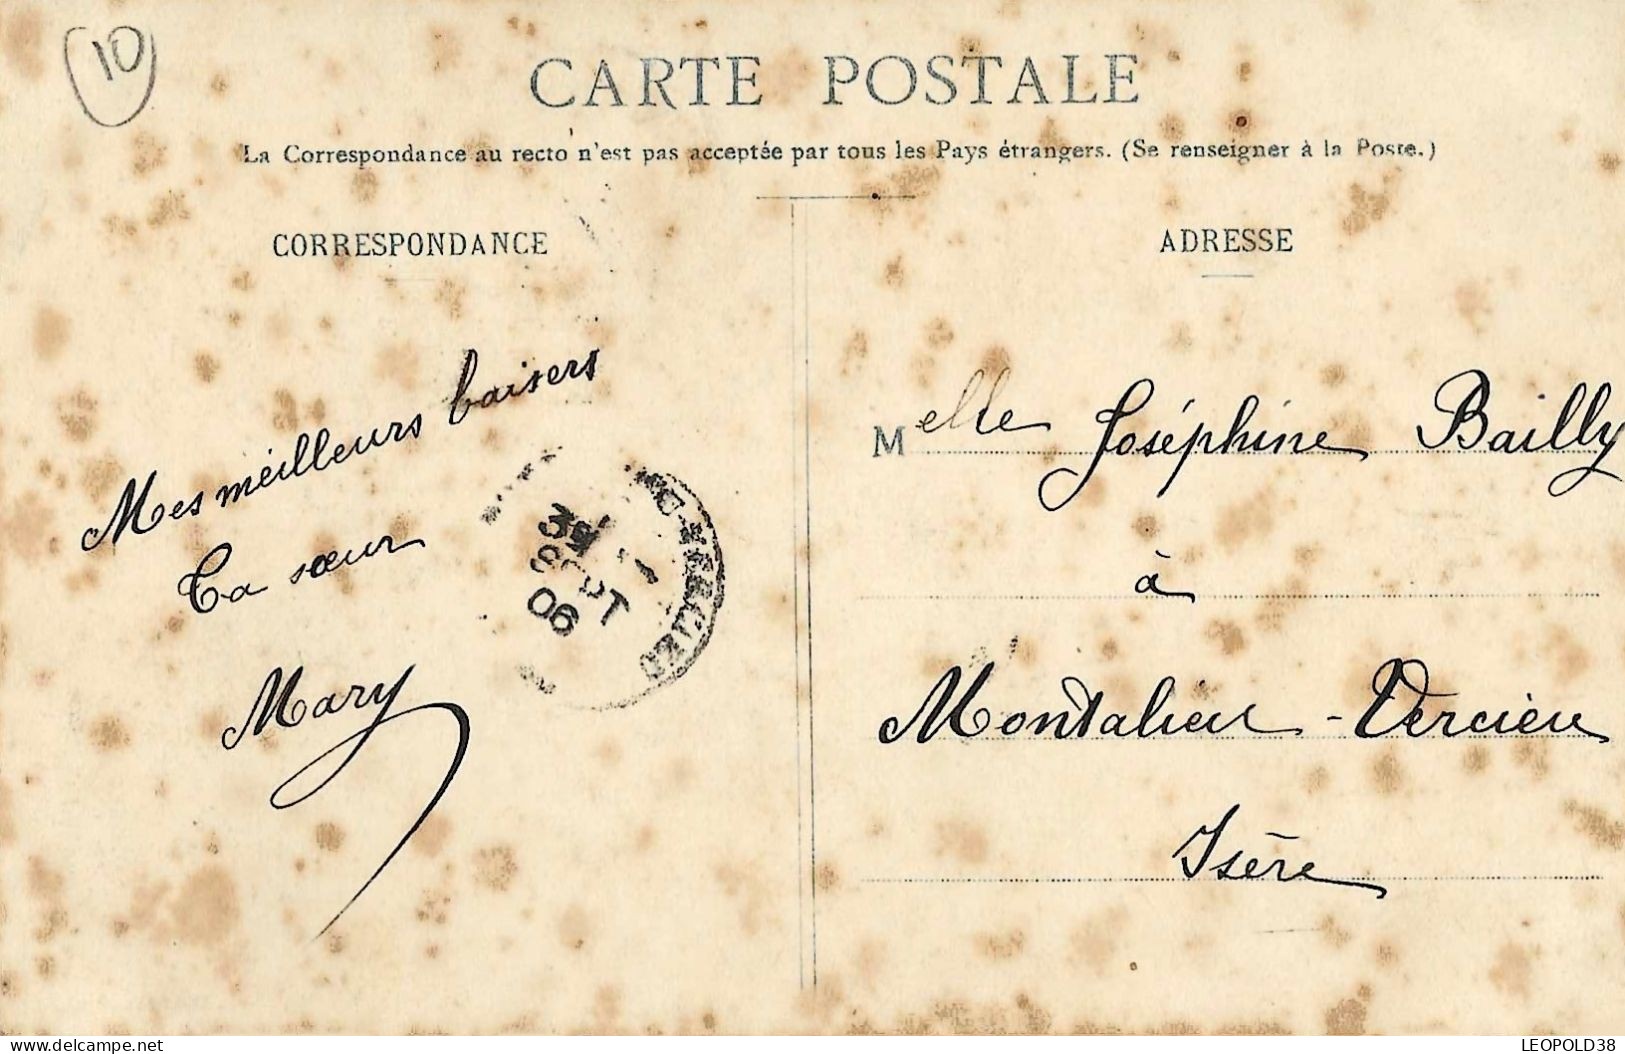 10
CARTE POSTALE
La Correspondance au recto n'est pas acceptée par tous les Pays étrangers. (Se renseigner à la Poste.)
CORRESPONDANCE
Mes meilleurs baisers
Ta sœur
Mary
SEPT
06
ADRESSE
Melle Joséphine Bailly
à
Montalieu-Vercieu
Isère
www.delcampe.net
LEOPOLD38